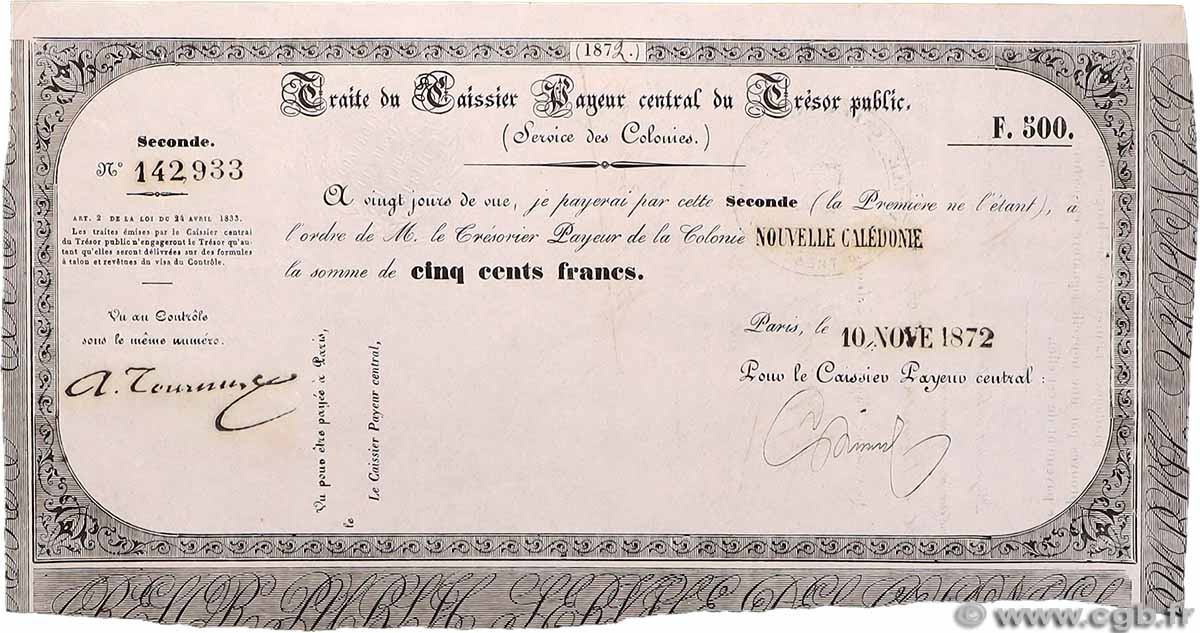 (1872.)
Traite du Caissier Payeur central du Trésor public.
(Service des Colonies.)
F. 500.
Seconde.
N° 142,933
ART. 2 DE LA LOI DU 24 AVRIL 1833.
Les traites émises par le Caissier central
du Trésor public n'engageront le Trésor qu'au-
tant qu'elles seront délivrées sur des formules
à talon et revêtues du visa du Contrôle.
Vu au Contrôle
sous le même numéro.
A vingt jours de vue, je payerai par cette Seconde (la Première ne l'étant), à
l'ordre de M. le Trésorier Payeur de la Colonie NOUVELLE CALÉDONIE
la somme de cinq cents francs.
Paris, le 10 NOVE 1872
Pour le Caissier Payeur central :
Vu pour être payée à Paris,
le
Le Caissier Payeur central,
© www.cgb.fr